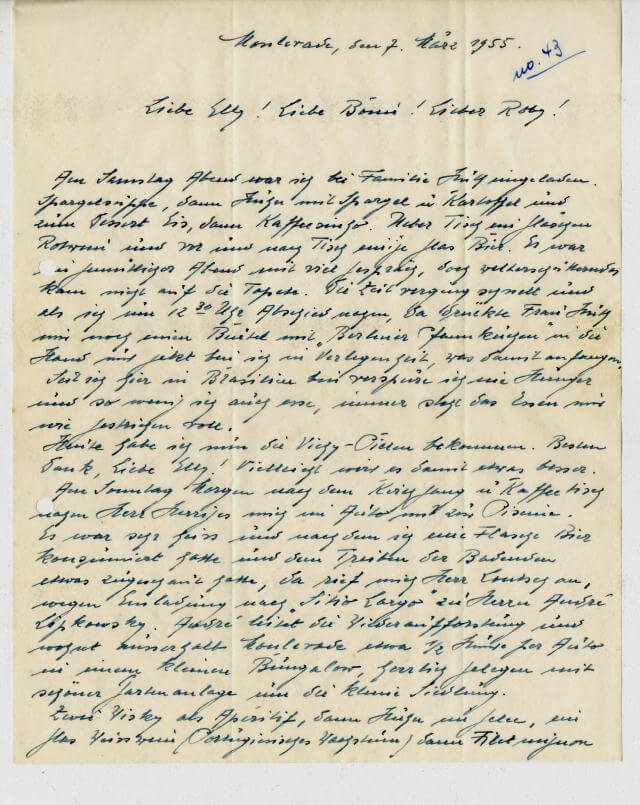 Monlevade, den 7. März 1955.
no. 43
Liebe Elly! Liebe Bömi! Lieber Roby!
Am Samstag Abend war ich bei Familie eingeladen.
Spargelsuppe, dann Huhn mit Spargel u Kartoffel und
zum Dessert Eis, dann Kaffee. Ueber Tisch ein Gläschen
Rotwein und vor und nach Tisch einige glas Bier. Es war
ein gemütlicher Abend mit viel gespräch, doch welterschütterndes
kam nicht auf die Tapete. Die Zeit verging schnell und
als ich um 12 30 Uhr Abschied nahm, da drückte Frau
mir noch einen Beutel mit "Berliner Pfannkuchen" in die
Hand und jetzt bin ich in Verlegenheit, was damit anfangen.
Seit ich hier in Brasilien bin verspüre ich nie Hunger
und so wenig ich auch esse, immer steht das Essen mir
wie gestrichen voll.
Heute habe ich nun die Vichy-Pillen bekommen. Besten
Dank, Liebe Elly! Vielleicht wird es damit etwas besser.
Am Sonntag Morgen nach dem Kirchgang u Kaffeetisch
nahm Herr mich im Auto mit zur Piscine.
Es war sehr heiss und nachdem ich eine Flasche Bier
konsumiert hatte und dem Treiben der Badenden
etwas zugeschaut hatte, da rief mich Herr Loutsch an,
wegen Einladung nach "Sitio Largo" zu Herrn André
Lopkowsky. André leitet die Wiederaufforstung und
wohnt ausserhalb Monlevade etwa 1/2 Stunde per Auto
in einem kleinen Bungalow, herrlich gelegen mit
schöner Gartenanlage um die kleine Siedlung.
Zwei Wisky als Apéritif, dann Huhn in gelee, ein
glas Weisswein (Portugiesisches Wachstum) dann Filet mignon